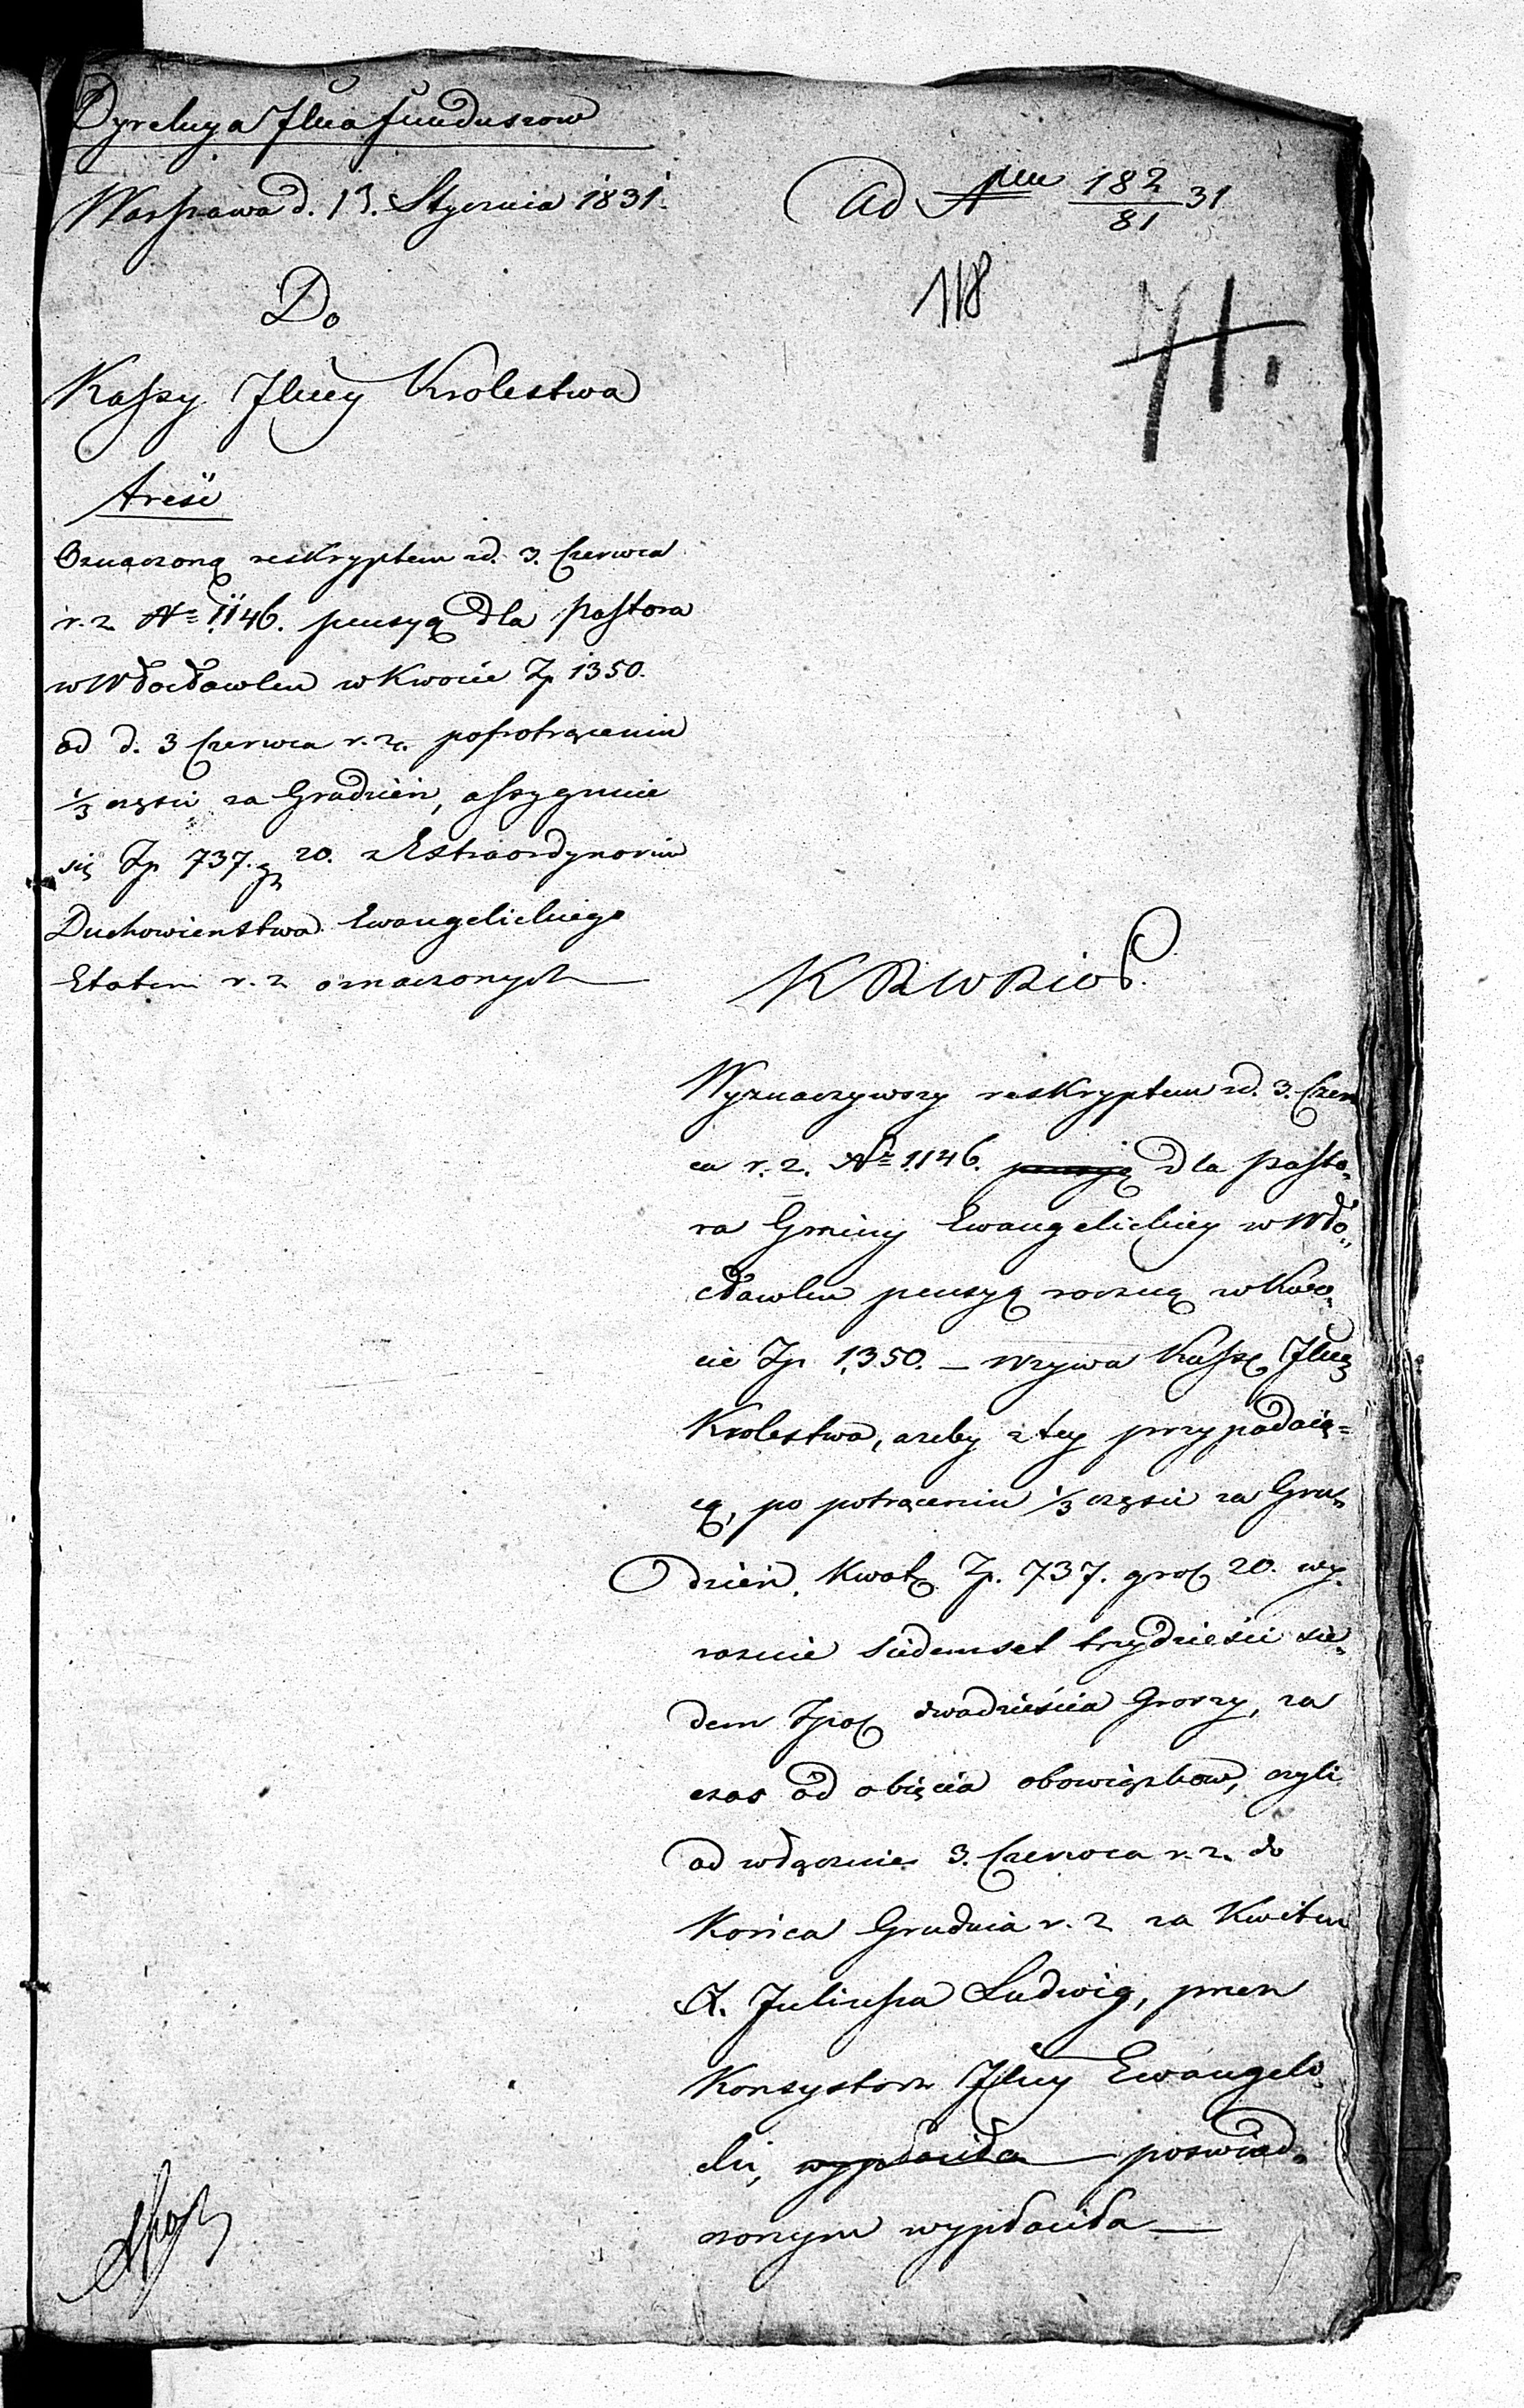 Dyrekcya Jlna funduszow
Warszawa d. 13. Stycznia 1831.
Ad Nrm 182/81 31
118
71.
Do
Kassy Jlney Krolestwa
treść
Oznaczoną reskryptem zd. 3. Czerwca
r. z. Nr 1146. pensyą dla Pastora
w Włocławku w kwocie Zp 1350.
od d. 3 Czerwca r. z. po potrąceniu
1/3 części za Grudzień, assygnuie
się Zp 737. gr 20. z Extraordynarium
Duchowieństwa Ewangelickiego
Etatem r. z. oznaczonych
K R W R i O P.
Wyznaczywszy reskryptem zd. 3. Czerw
ca r. z. Nr 1146. pensyą dla Pasto
ra Gminy Ewangelickiey w Wło
cławku pensyą roczną w kwo
cie Zp 1350. – wzywa Kassę Jlną
Krolestwa, ażeby z tey przypadaią=
cą, po potrąceniu 1/3 części za Gru
dzień, kwotę Zp. 737. gros 20. wy
raznie siedemset trzydzieści sie
dem Zpol dwadzieścia Groszy, za
czas od obięcia obowiązkow, czyli
od włącznie 3. Czerwca r. z. do
Końca Grudnia r. z. za kwitem
X. Juliusza Ludwig, przez
Konsystorz Jlny Ewangeli
cki, wypłaciła poswiad
czonym wypłaciła